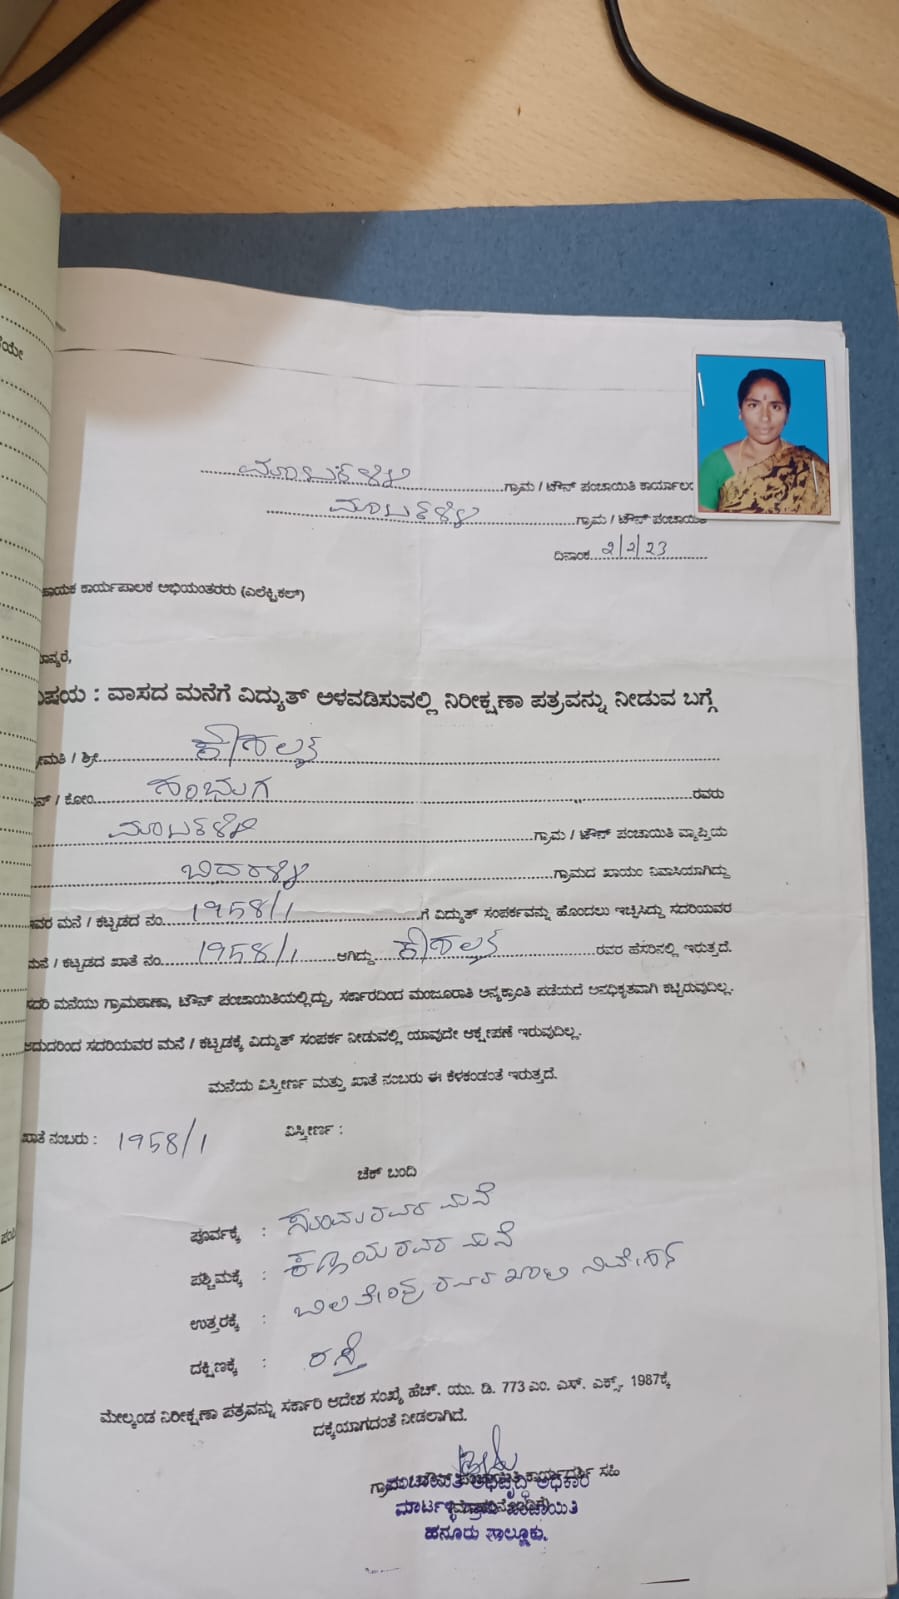 ಮಾರ್ಟಳ್ಳಿ ಗ್ರಾಮ / ಟೌನ್ ಪಂಚಾಯಿತಿ
ಮಾರ್ಟಳ್ಳಿ ಗ್ರಾಮ / ಟೌನ್ ಪಂಚಾಯಿತಿ
ದಿನಾಂಕ 2/2/23
ಕಾರ್ಯಪಾಲಕ ಅಭಿಯಂತರರು (ಎಲೆಕ್ಟ್ರಿಕಲ್)
ವಾಸದ ಮನೆಗೆ ವಿದ್ಯುತ್ ಅಳವಡಿಸುವಲ್ಲಿ ನಿರೀಕ್ಷಣಾ ಪತ್ರವನ್ನು ನೀಡುವ ಬಗ್ಗೆ
/ ಶ್ರೀ ಕೌಸಲ್ಯ
/ ಕೋಂ ರವರು
ಮಾರ್ಟಳ್ಳಿ ಗ್ರಾಮ / ಟೌನ್ ಪಂಚಾಯಿತಿ ವ್ಯಾಪ್ತಿಯ
ಬಿದರಳ್ಳಿ ಗ್ರಾಮದ ಖಾಯಂ ನಿವಾಸಿಯಾಗಿದ್ದು
ಮನೆ / ಕಟ್ಟಡದ ನಂ. 1958/1 ಗೆ ವಿದ್ಯುತ್ ಸಂಪರ್ಕವನ್ನು ಹೊಂದಲು ಇಚ್ಛಿಸಿದ್ದು ಸದರಿಯವರ
ಮನೆ / ಕಟ್ಟಡದ ಖಾತೆ ನಂ. 1958/1 ಆಗಿದ್ದು ಕೌಸಲ್ಯ ರವರ ಹೆಸರಿನಲ್ಲಿ ಇರುತ್ತದೆ.
ಸದರಿ ಮನೆಯು ಗ್ರಾಮಠಾಣಾ, ಟೌನ್ ಪಂಚಾಯಿತಿಯಲ್ಲಿದ್ದು, ಸರ್ಕಾರದಿಂದ ಮಂಜೂರಾತಿ ಅನ್ಯಕ್ರಾಂತಿ ಪಡೆಯದೆ ಅನಧಿಕೃತವಾಗಿ ಕಟ್ಟಿರುವುದಿಲ್ಲ.
ಸದರಿಯವರ ಮನೆ / ಕಟ್ಟಡಕ್ಕೆ ವಿದ್ಯುತ್ ಸಂಪರ್ಕ ನೀಡುವಲ್ಲಿ ಯಾವುದೇ ಆಕ್ಷೇಪಣೆ ಇರುವುದಿಲ್ಲ.
ಮನೆಯ ವಿಸ್ತೀರ್ಣ ಮತ್ತು ಖಾತೆ ನಂಬರು ಈ ಕೆಳಕಂಡಂತೆ ಇರುತ್ತದೆ.
ಖಾತೆ ನಂಬರು : 1958/1 ವಿಸ್ತೀರ್ಣ :
ಚೆಕ್ ಬಂದಿ
ಪೂರ್ವಕ್ಕೆ : ರವರ ಮನೆ
ಪಶ್ಚಿಮಕ್ಕೆ : ರವರ ಮನೆ
ಉತ್ತರಕ್ಕೆ : ರವರ ಖಾಲಿ ನಿವೇಶನ
ದಕ್ಷಿಣಕ್ಕೆ : ರಸ್ತೆ
ಮೇಲ್ಕಂಡ ನಿರೀಕ್ಷಣಾ ಪತ್ರವನ್ನು ಸರ್ಕಾರಿ ಆದೇಶ ಸಂಖ್ಯೆ ಹೆಚ್. ಯು. ಡಿ. 773 ಎಂ. ಎಸ್. ಎಕ್ಸ್. 1987ಕ್ಕೆ
ದಕ್ಕೆಯಾಗದಂತೆ ನೀಡಲಾಗಿದೆ.
ಕಾರ್ಯದರ್ಶಿ ಸಹಿ
ಹನೂರು ತಾಲ್ಲೂಕು.